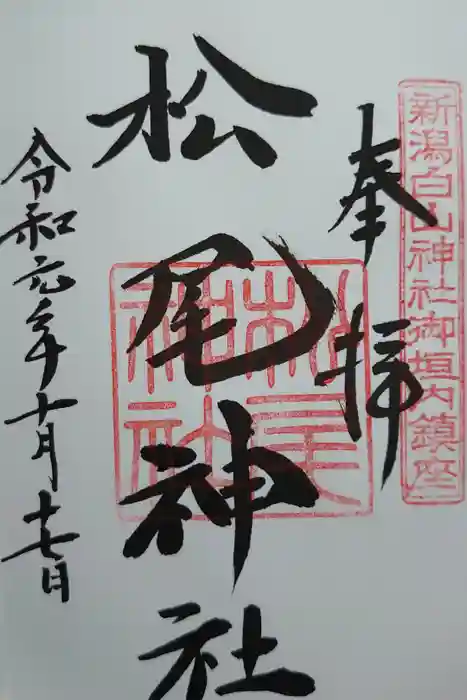 新潟白山神社御垣内鎮座
奉拝
松尾神社
松尾
神社
令和元年十月十七日